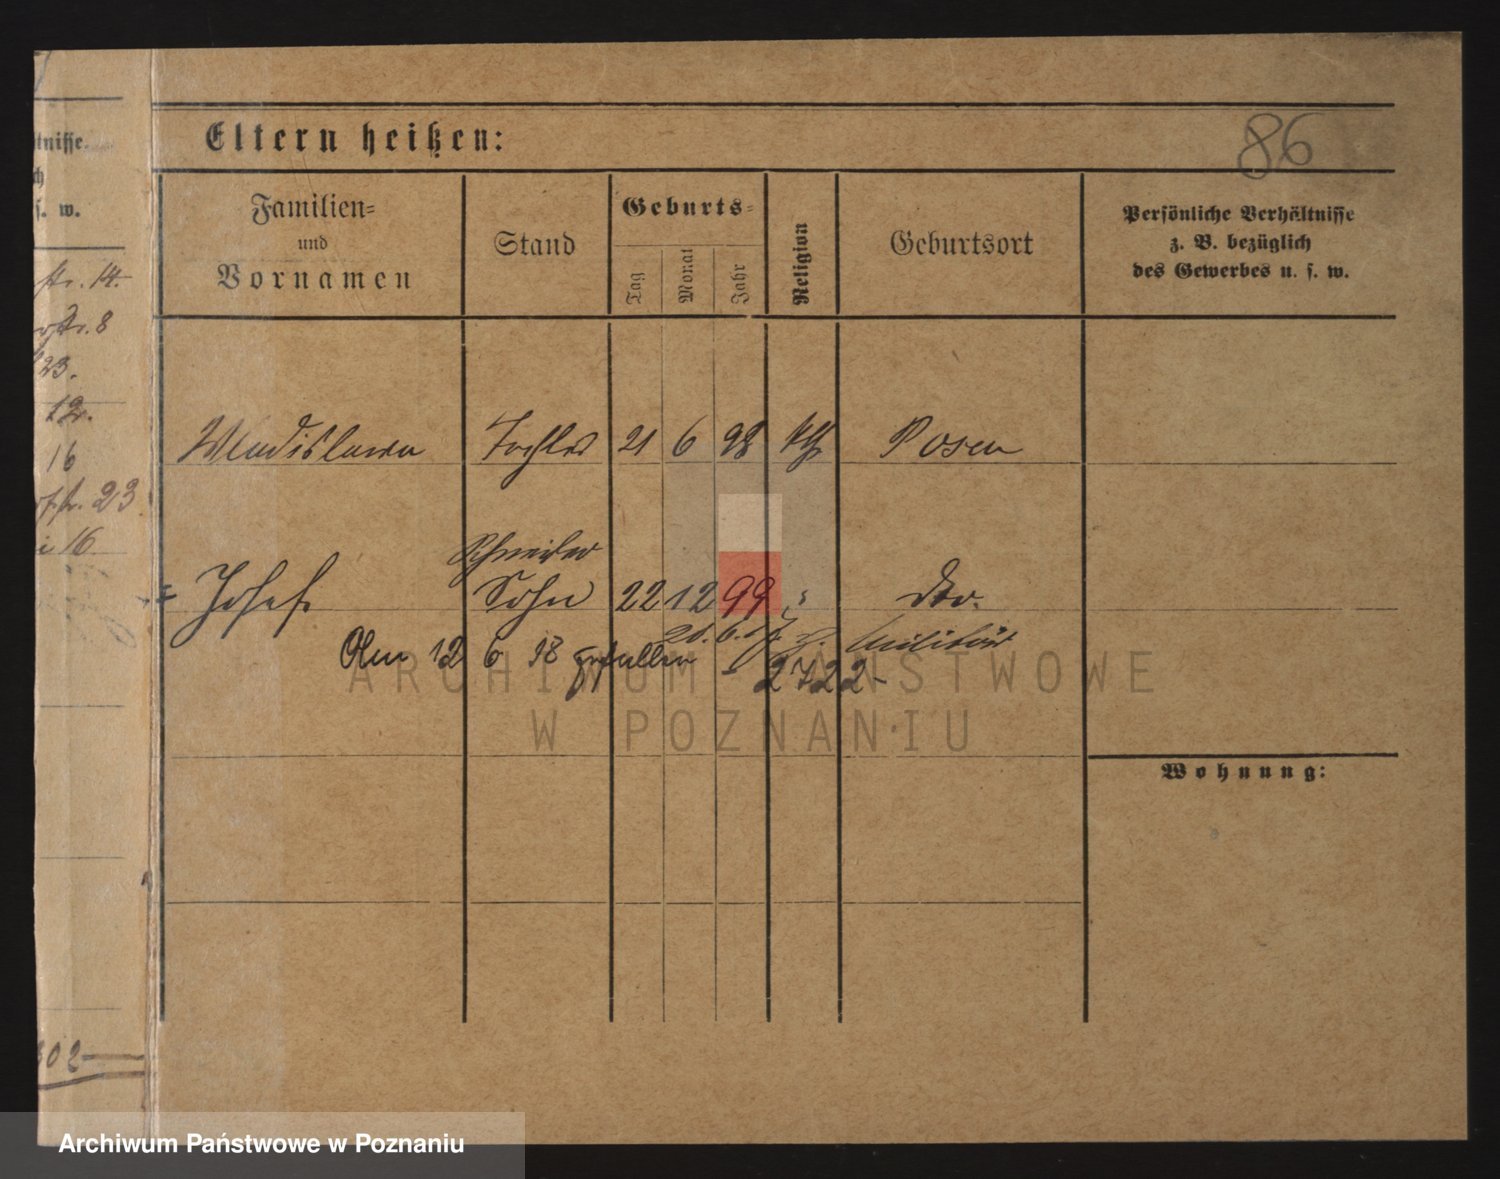 Eltern heißen:
86
Familien-
und
Vornamen
Stand
Geburts-
Tag
Monat
Jahr
Religion
Geburtsort
Persönliche Verhältnisse
z. B. bezüglich
des Gewerbes u. s. w.
tnisse.
ch
s. w.
str. 14.
str. 8
23.
12.
16
str. 23
16
Wladislawa Tochter 21 6 98 kth Posen
Schneider
= Josef Sohn 22 12 99 " dto.
20. 6. 17 z. Militär
Am 12 6 18 gefallen - 2722-
Wohnung:
302
ARCHIWUM PAŃSTWOWE
W POZNANIU
Archiwum Państwowe w Poznaniu